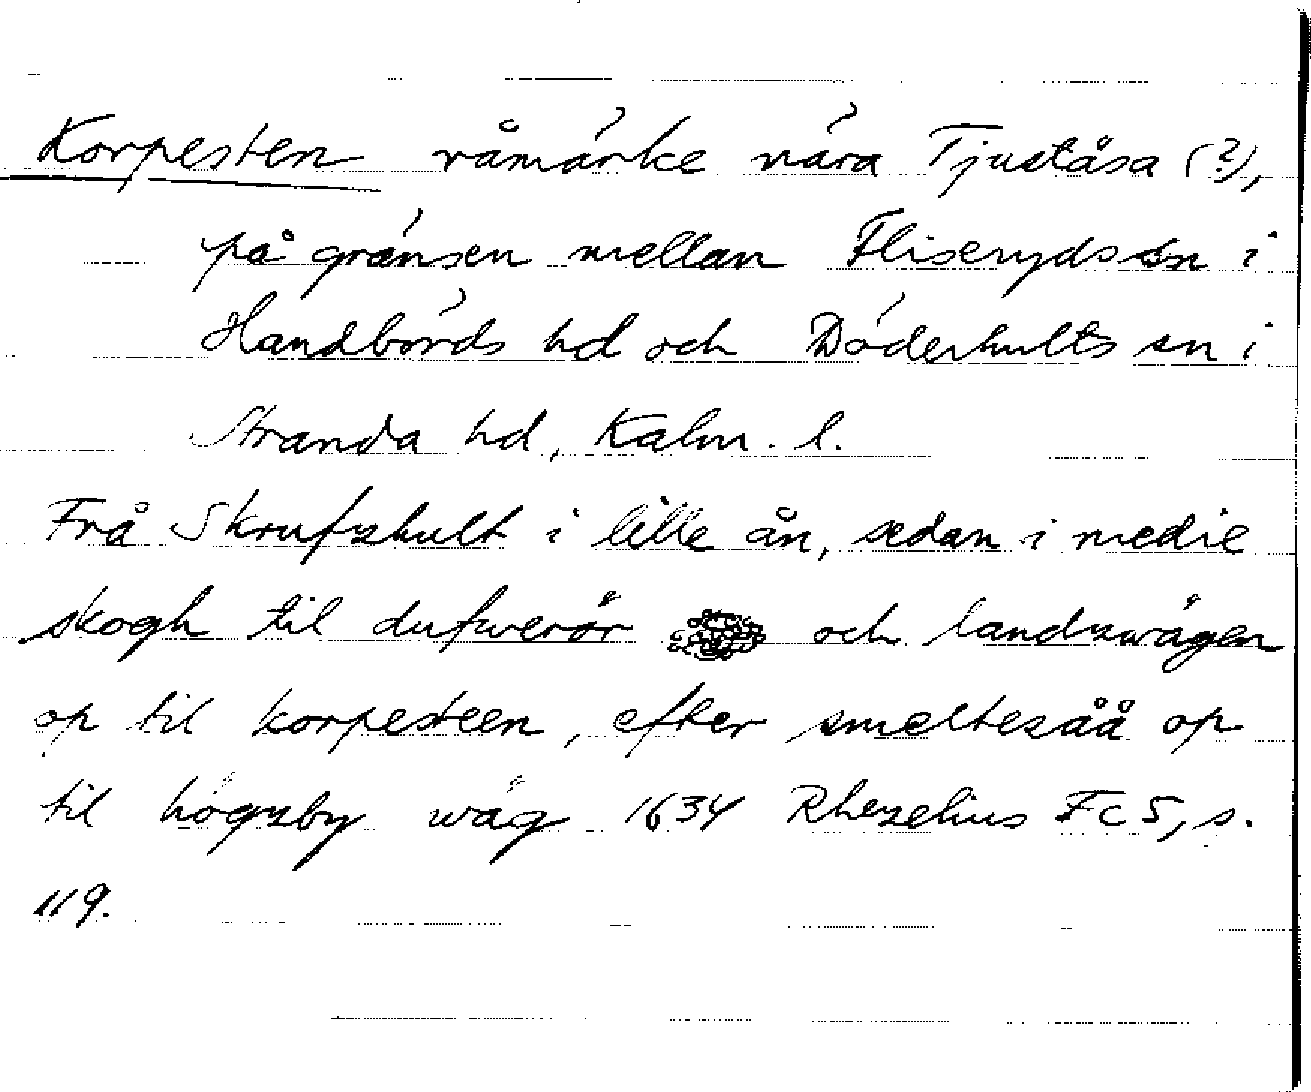 Korpesten råmärke nära Tjuståsa (?),
på gränsen mellan Fliseryds sn i
Handbörds hd och Döderhults sn i
Stranda hd, Kalm. l.
Frå Skrufzhult i lille ån, sedan i medie
skogh til dufwerör och landzwägen
op til korpesteen, efter smeltesåå op
til högzby wäg 1634 Rhezelius Fc5, s.
119.